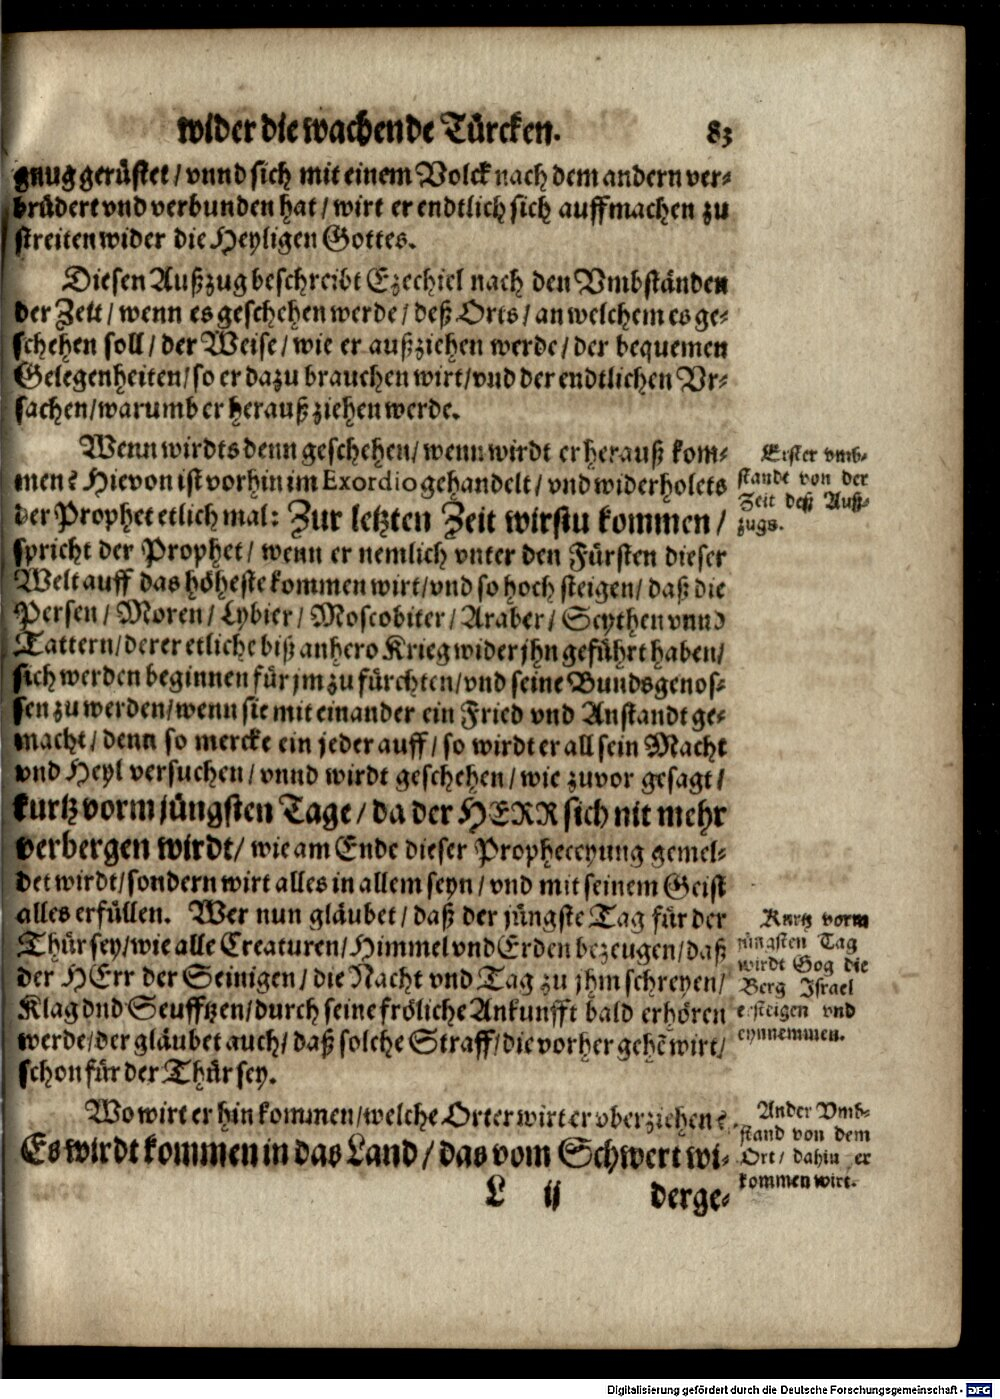 wider die wachende Türcken. 83
gnug gerüstet / vnnd sich mit einem Volck nach dem andern ver-
brüdert vnd verbunden hat / wirt er endtlich sich auffmachen zu
streiten wider die Heyligen Gottes.
Diesen Außzug beschreibt Ezechiel nach den Vmbständen
der Zeit / wenn es geschehen werde / deß Orts / an welchem es ge-
schehen soll / der Weise / wie er außziehen werde / der bequemen
Gelegenheiten / so er dazu brauchen wirt / vnd der endtlichen Vr-
sachen / warumb er herauß ziehen werde.
Wenn wirdts denn geschehen / wenn wirdt er herauß kom-
men? Hievon ist vorhin im Exordio gehandelt / vnd widerholets
der Prophet etlich mal: Zur letzten Zeit wirstu kommen /
spricht der Prophet / wenn er nemlich vnter den Fürsten dieser
Welt auff das höheste kommen wirt / vnd so hoch steigen / daß die
Persen / Moren / Lybier / Moscobiter / Araber / Scythen vnnd
Tattern / derer etliche biß anhero Krieg wider jhn geführt haben /
sich werden beginnen für jm zu fürchten / vnd seine Bundsgenos-
sen zu werden / wenn sie mit einander ein Fried vnd Anstandt ge-
macht / denn so mercke ein jeder auff / so wirdt er all sein Macht
vnd Heyl versuchen / vnnd wirdt geschehen / wie zuvor gesagt /
kurtz vorm jüngsten Tage / da der HERR sich nit mehr
verbergen wirdt / wie am Ende dieser Propheceyung gemel-
det wirdt / sondern wirt alles in allem seyn / vnd mit seinem Geist
alles erfüllen. Wer nun gläubet / daß der jüngste Tag für der
Thür sey / wie alle Creaturen / Himmel vnd Erden bezeugen / daß
der HErr der Seinigen / die Nacht vnd Tag zu jhm schreyen /
Klag vnd Seufftzen / durch seine fröliche Ankunfft bald erhören
werde / der gläubet auch / daß solche Straff / die vorher gehẽ wirt /
schon für der Thür sey.
Wo wirt er hin kommen / welche Orter wirt er vberziehen?
Es wirdt kommen in das Land / das vom Schwert wi-
L ij derge-
Erster vmb-
stande von der
Zeit deß Auß-
zugs.
Kurtz vorm
jüngsten Tag
wirdt Gog die
Berg Israel
ersteigen vnd
eynnemmen.
Ander Vmb-
stand von dem
Ort / dahin er
kommen wirt.
Digitalisierung gefördert durch die Deutsche Forschungsgemeinschaft - DFG